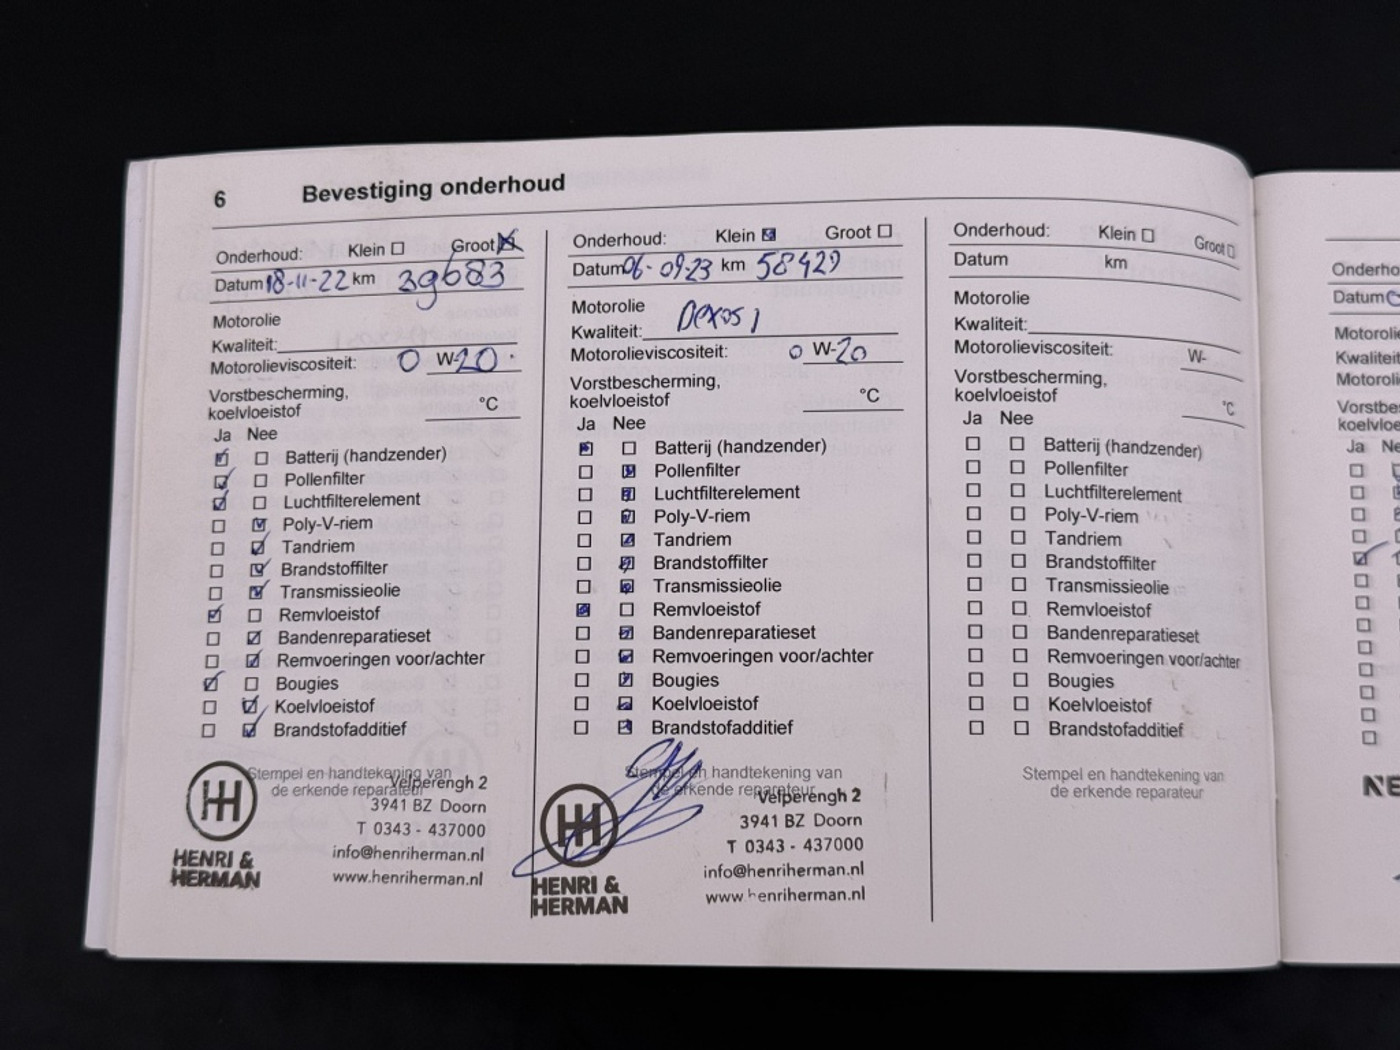 6 Bevestiging onderhoud
Onderhoud: Klein Groot
Datum 18-11-22 km 39683
Motorolie
Kwaliteit:
Motorolieviscositeit: 0 W-20
Vorstbescherming,
koelvloeistof °C
Ja Nee
Batterij (handzender)
Pollenfilter
Luchtfilterelement
Poly-V-riem
Tandriem
Brandstoffilter
Transmissieolie
Remvloeistof
Bandenreparatieset
Remvoeringen voor/achter
Bougies
Koelvloeistof
Brandstofadditief
Stempel en handtekening van
de erkende reparateur
Velperengh 2
3941 BZ Doorn
T 0343 - 437000
info@henriherman.nl
www.henriherman.nl
HENRI &
HERMAN
Onderhoud: Klein Groot
Datum 06-09-23 km 58429
Motorolie
Kwaliteit: Dexos 1
Motorolieviscositeit: 0 W-20
Vorstbescherming,
koelvloeistof °C
Ja Nee
Batterij (handzender)
Pollenfilter
Luchtfilterelement
Poly-V-riem
Tandriem
Brandstoffilter
Transmissieolie
Remvloeistof
Bandenreparatieset
Remvoeringen voor/achter
Bougies
Koelvloeistof
Brandstofadditief
Stempel en handtekening van
de erkende reparateur
Velperengh 2
3941 BZ Doorn
T 0343 - 437000
info@henriherman.nl
www.henriherman.nl
HENRI &
HERMAN
Onderhoud: Klein Groot
Datum km
Motorolie
Kwaliteit:
Motorolieviscositeit: W-
Vorstbescherming,
koelvloeistof °C
Ja Nee
Batterij (handzender)
Pollenfilter
Luchtfilterelement
Poly-V-riem
Tandriem
Brandstoffilter
Transmissieolie
Remvloeistof
Bandenreparatieset
Remvoeringen voor/achter
Bougies
Koelvloeistof
Brandstofadditief
Stempel en handtekening van
de erkende reparateur
Onderho
Datum
Motorolie
Kwaliteit
Motoroli
Vorstbes
koelvloe
Ja Ne
NE